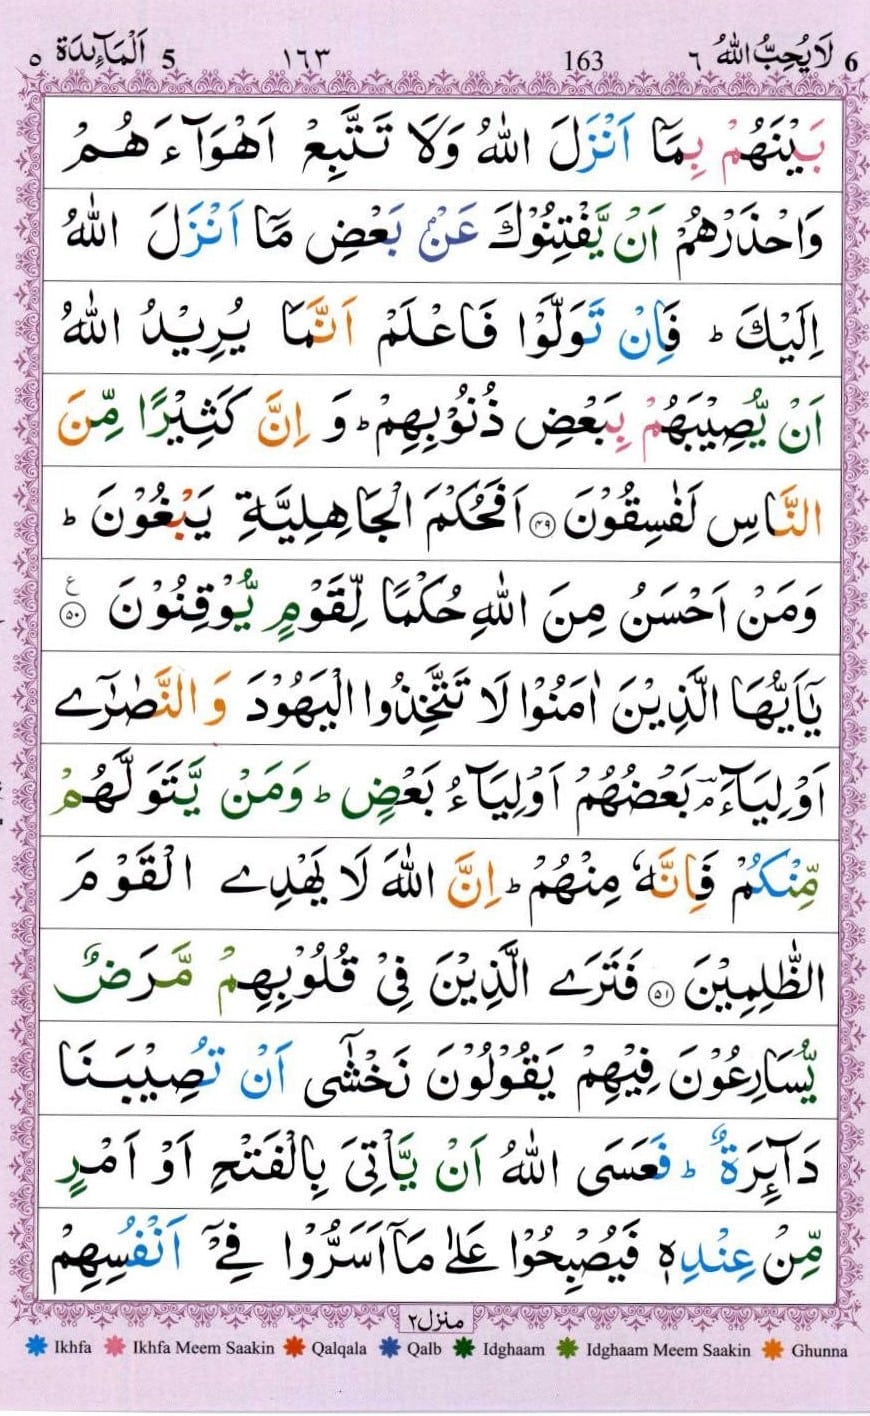 6 لَا يُحِبُّ اللّٰهُ ٦ 163 ١٦٣ 5 اَلْمَآئِدَة ٥
بَيْنَهُمْ بِمَآ اَنْزَلَ اللّٰهُ وَلَا تَتَّبِعْ اَهْوَآءَهُمْ
وَاحْذَرْهُمْ اَنْ يَّفْتِنُوْكَ عَنْۢ بَعْضِ مَآ اَنْزَلَ اللّٰهُ
اِلَيْكَ ؕ فَاِنْ تَوَلَّوْا فَاعْلَمْ اَنَّمَا يُرِيْدُ اللّٰهُ
اَنْ يُّصِيْبَهُمْ بِبَعْضِ ذُنُوْبِهِمْ ؕ وَ اِنَّ كَثِيْرًا مِّنَ
النَّاسِ لَفٰسِقُوْنَ ﴿۴۹﴾ اَفَحُكْمَ الْجَاهِلِيَّةِ يَبْغُوْنَ ؕ
وَمَنْ اَحْسَنُ مِنَ اللّٰهِ حُكْمًا لِّقَوْمٍ يُّوْقِنُوْنَ ﴿۵۰﴾ ع
يٰۤاَيُّهَا الَّذِيْنَ اٰمَنُوْا لَا تَتَّخِذُوا الْيَهُوْدَ وَ النَّصٰرٰۤے
اَوْلِيَآءَ ؔۘ بَعْضُهُمْ اَوْلِيَآءُ بَعْضٍ ؕ وَمَنْ يَّتَوَلَّهُمْ
مِّنْكُمْ فَاِنَّهٗ مِنْهُمْ ؕ اِنَّ اللّٰهَ لَا يَهْدِے الْقَوْمَ
الظّٰلِمِيْنَ ﴿۵۱﴾ فَتَرَے الَّذِيْنَ فِيْ قُلُوْبِهِمْ مَّرَضٌ
يُّسَارِعُوْنَ فِيْهِمْ يَقُوْلُوْنَ نَخْشٰٓى اَنْ تُصِيْبَنَا
دَآئِرَةٌ ؕ فَعَسَى اللّٰهُ اَنْ يَّاْتِىَ بِالْفَتْحِ اَوْ اَمْرٍ
مِّنْ عِنْدِهٖ فَيُصْبِحُوْا عَلٰى مَآ اَسَرُّوْا فِيْۤ اَنْفُسِهِمْ
منزل٢
Ikhfa Ikhfa Meem Saakin Qalqala Qalb Idghaam Idghaam Meem Saakin Ghunna